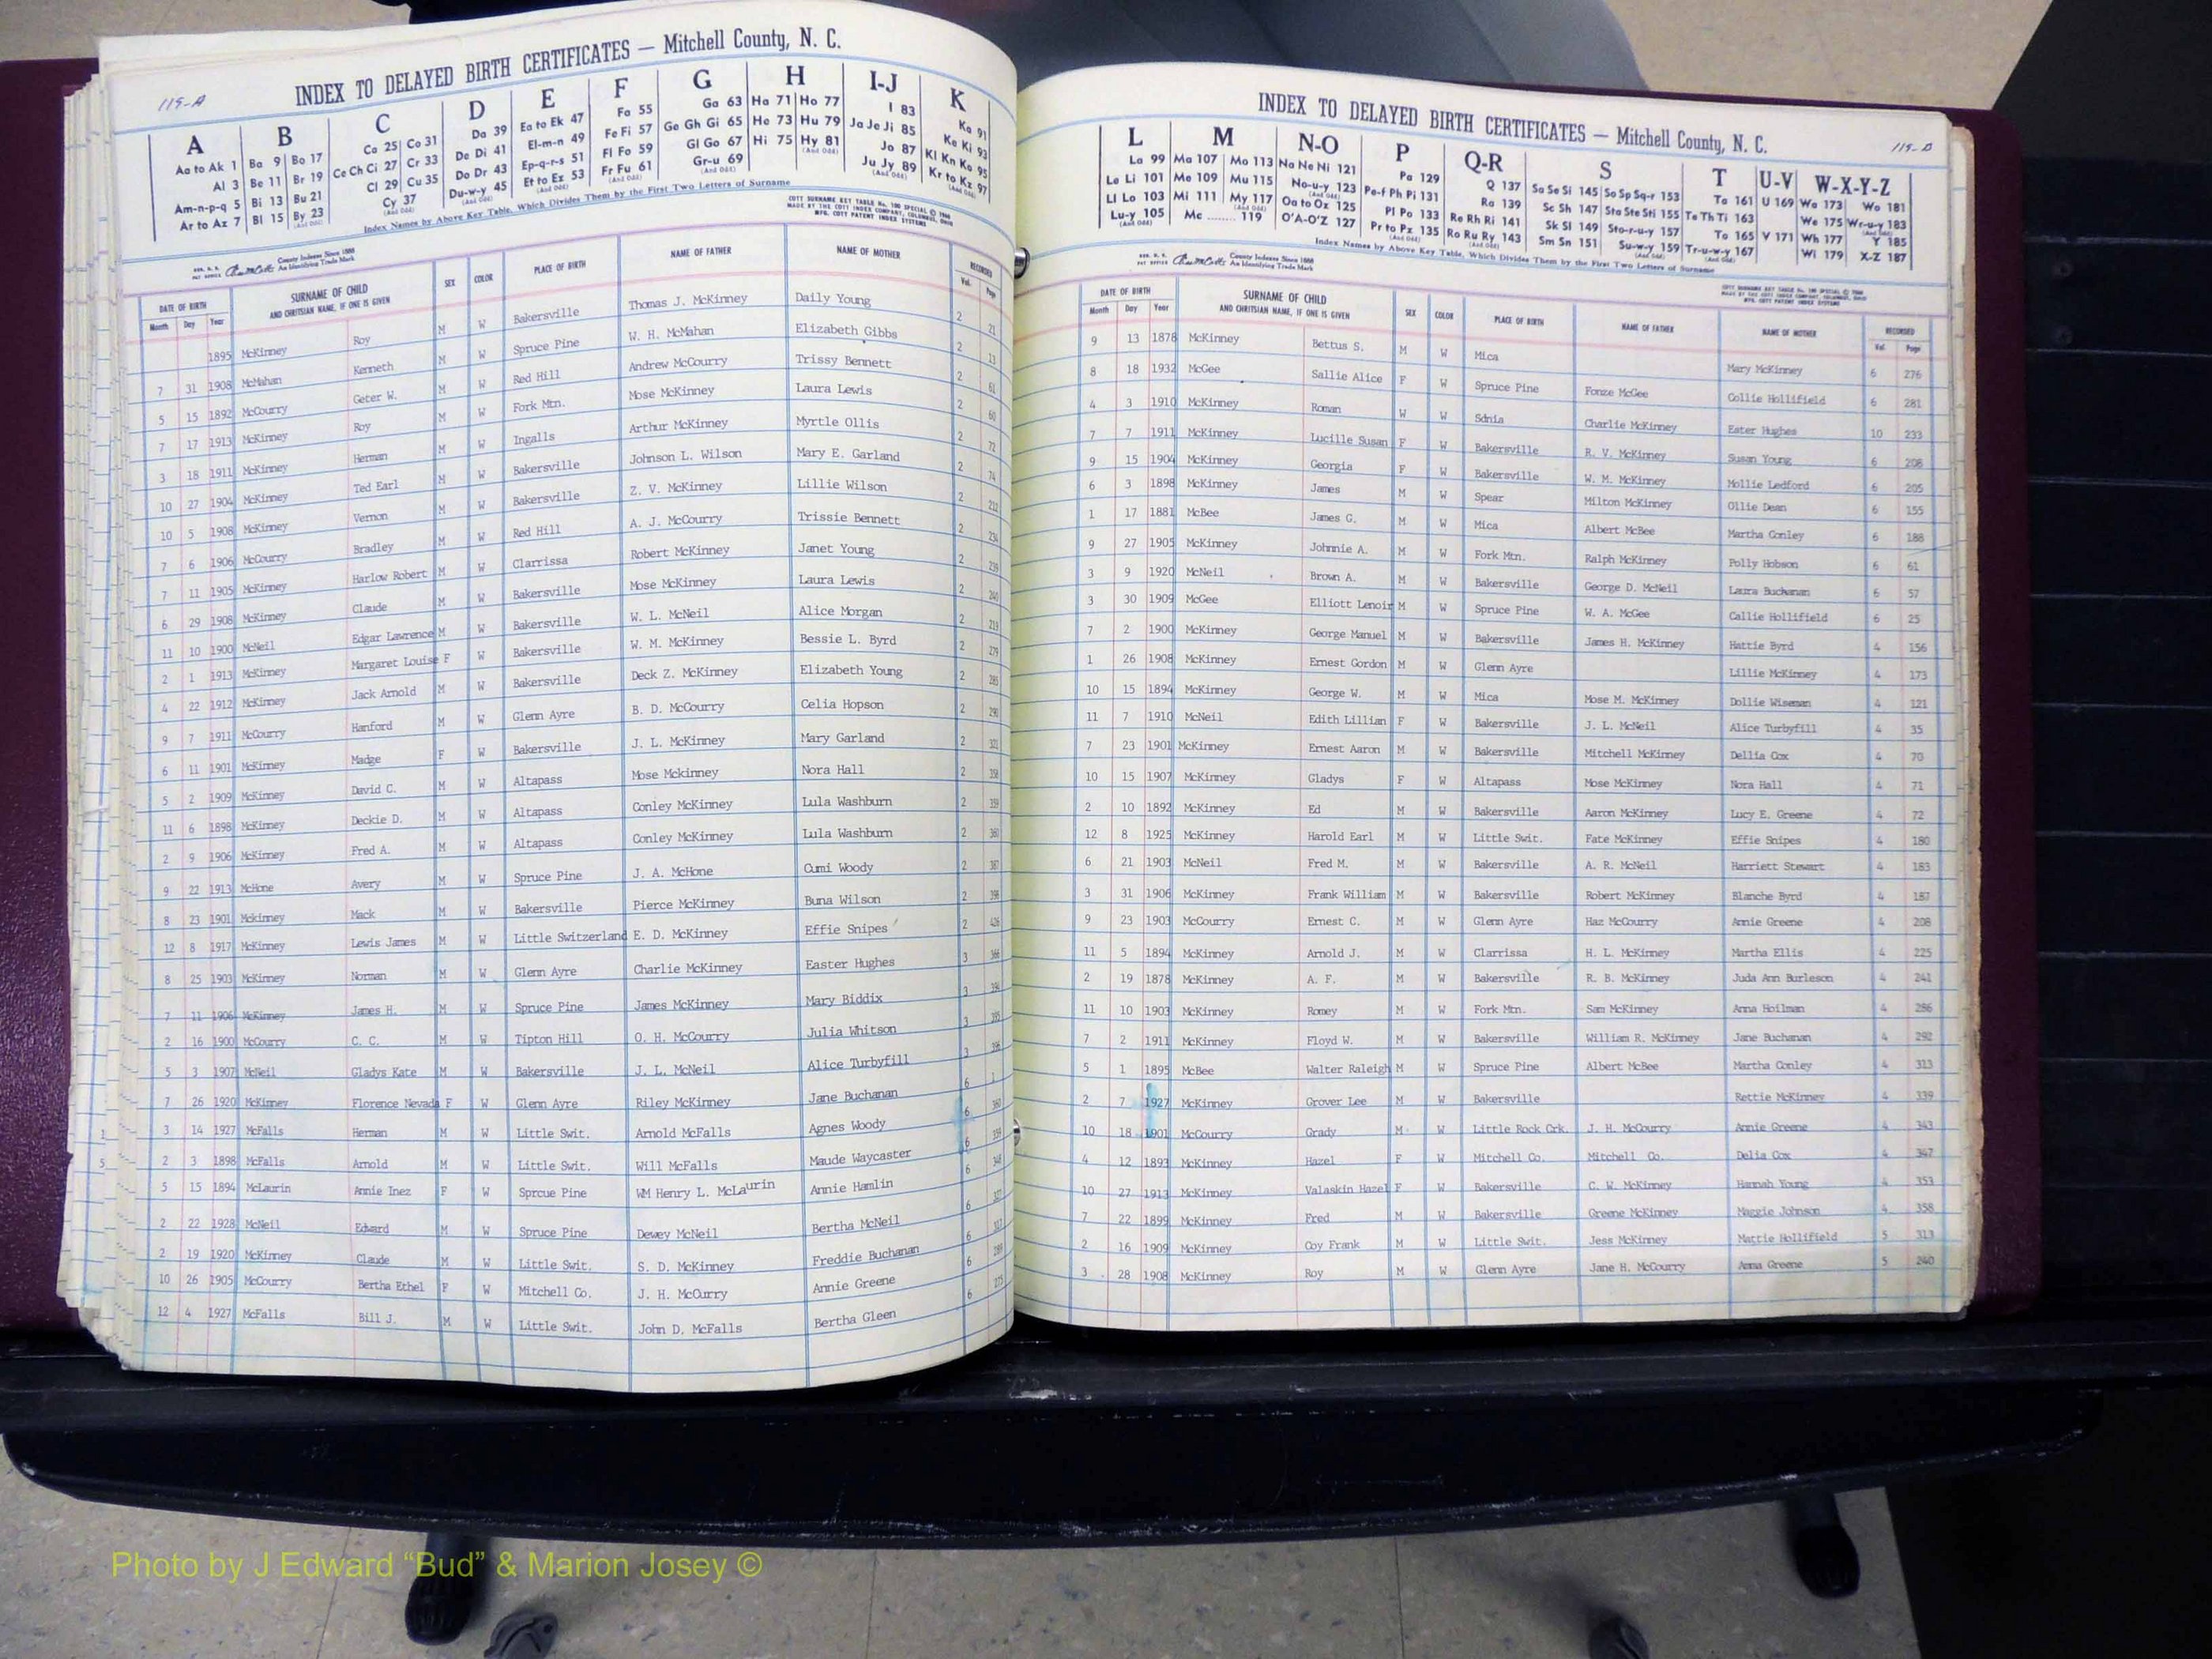 115-A
INDEX TO DELAYED BIRTH CERTIFICATES — Mitchell County, N. C.
A B C D E F G H I-J K
Aa to Ak 1 Ba 9 Bo 17 Ca 25 Co 31 Da 39 Ea to Ek 47 Fa 55 Ga 63 Ha 71 Ho 77 I 83 Ka 91
Al 3 Be 11 Br 19 Ce Ch Ci 27 Cr 33 De Di 41 El-m-n 49 Fe Fi 57 Ge Gh Gi 65 He 73 Hu 79 Ja Je Ji 85 Ke Ki 93
Am-n-p-q 5 Bi 13 Bu 21 Cl 29 Cu 35 Do Dr 43 Ep-q-r-s 51 Fl Fo 59 Gl Go 67 Hi 75 Hy 81 Jo 87 Kl Kn Ko 95
Ar to Az 7 Bl 15 By 23 Cy 37 Du-w-y 45 Et to Ez 53 Fr Fu 61 Gr-u 69 Ju Jy 89 Kr to Kz 97
Index Names by Above Key Table, Which Divides Them by the First Two Letters of Surname
County Indexes Since 1888
An Identifying Trade Mark
DATE OF BIRTH SURNAME OF CHILD AND CHRITSIAN NAME, IF ONE IS GIVEN SEX COLOR PLACE OF BIRTH NAME OF FATHER NAME OF MOTHER RECORDED
Month Day Year Vol. Page
1895 McKinney Roy M W Bakersville Thomas J. McKinney Daily Young 2 21
7 31 1908 McMahan Kenneth M W Spruce Pine W. H. McMahan Elizabeth Gibbs 2 13
5 15 1892 McCourry Geter W. M W Red Hill Andrew McCourry Trissy Bennett 2 61
7 17 1913 McKinney Roy M W Fork Mtn. Mose McKinney Laura Lewis 2 60
3 18 1911 McKinney Herman M W Ingalls Arthur McKinney Myrtle Ollis 2 72
10 27 1904 McKinney Ted Earl M W Bakersville Johnson L. Wilson Mary E. Garland 2 74
10 5 1908 McKinney Vernon M W Bakersville Z. V. McKinney Lillie Wilson 2 212
7 6 1906 McCourry Bradley M W Red Hill A. J. McCourry Trissie Bennett 2 234
7 11 1905 McKinney Harlow Robert M W Clarrissa Robert McKinney Janet Young 2 239
6 29 1908 McKinney Claude M W Bakersville Mose McKinney Laura Lewis 2 240
11 10 1900 McNeil Edgar Lawrence M W Bakersville W. L. McNeil Alice Morgan 2 219
2 1 1913 McKinney Margaret Louise F W Bakersville W. M. McKinney Bessie L. Byrd 2 279
4 22 1912 McKinney Jack Arnold M W Bakersville Deck Z. McKinney Elizabeth Young 2 285
9 7 1911 McCourry Hanford M W Glenn Ayre B. D. McCourry Celia Hopson 2 290
6 11 1901 McKinney Madge F W Bakersville J. L. McKinney Mary Garland 2 321
5 2 1909 McKinney David C. M W Altapass Mose Mckinney Nora Hall 2 358
11 6 1898 McKinney Deckie D. M W Altapass Conley McKinney Lula Washburn 2 359
2 9 1906 McKinney Fred A. M W Altapass Conley McKinney Lula Washburn 2 360
9 22 1913 McHone Avery M W Spruce Pine J. A. McHone Cumi Woody 2 387
8 23 1901 Mckinney Mack M W Bakersville Pierce McKinney Buna Wilson 2 396
12 8 1917 McKinney Lewis James M W Little Switzerland E. D. McKinney Effie Snipes 2 426
8 25 1903 McKinney Norman M W Glenn Ayre Charlie McKinney Easter Hughes 3 366
7 11 1906 McKinney James H. M W Spruce Pine James McKinney Mary Biddix 3 394
2 16 1900 McCourry C. C. M W Tipton Hill O. H. McCourry Julia Whitson 3 395
5 3 1907 McNeil Gladys Kate M W Bakersville J. L. McNeil Alice Turbyfill 3 396
7 26 1920 McKinney Florence Nevada F W Glenn Ayre Riley McKinney Jane Buchanan 6 1
3 14 1927 McFalls Herman M W Little Swit. Arnold McFalls Agnes Woody 6 360
2 3 1898 McFalls Arnold M W Little Swit. Will McFalls Maude Waycaster 6 359
5 15 1894 McLaurin Annie Inez F W Sprcue Pine WM Henry L. McLaurin Annie Hamlin 6 348
2 22 1928 McNeil Edward M W Spruce Pine Dewey McNeil Bertha McNeil 6
2 19 1920 McKinney Claude M W Little Swit. S. D. McKinney Freddie Buchanan 6
10 26 1905 McCourry Bertha Ethel F W Mitchell Co. J. H. McCurry Annie Greene 6
12 4 1927 McFalls Bill J. M W Little Swit. John D. McFalls Bertha Gleen 6 275
115-B
INDEX TO DELAYED BIRTH CERTIFICATES — Mitchell County, N. C.
L M N-O P Q-R S T U-V W-X-Y-Z
La 99 Ma 107 Mo 113 Na Ne Ni 121 Pa 129 Q 137 Sa Se Si 145 So Sp Sq-r 153 Ta 161 U 169 Wa 173 Wo 181
Le Li 101 Me 109 Mu 115 No-u-y 123 Pe-f Ph Pi 131 Ra 139 Sc Sh 147 Sta Ste Sti 155 Te Th Ti 163 We 175 Wr-u-y 183
Ll Lo 103 Mi 111 My 117 Oa to Ox 125 Pl Po 133 Re Rh Ri 141 Sk Sl 149 Sto-r-u-y 157 To 165 V 171 Wh 177 Y 185
Lu-y 105 Mc ........ 119 O'A-O'Z 127 Pr to Pz 135 Ro Ru Ry 143 Sm Sn 151 Su-w-y 159 Tr-u-w-y 167 Wi 179 X-Z 187
Index Names by Above Key Table, Which Divides Them by the First Two Letters of Surname
County Indexes Since 1888
An Identifying Trade Mark
DATE OF BIRTH SURNAME OF CHILD AND CHRITSIAN NAME, IF ONE IS GIVEN SEX COLOR PLACE OF BIRTH NAME OF FATHER NAME OF MOTHER RECORDED
Month Day Year Vol. Page
9 13 1878 McKinney Bettus S. M W Mica Mary McKinney 6 276
8 18 1932 McGee Sallie Alice F W Spruce Pine Fonze McGee Collie Hollifield 6 281
4 3 1910 McKinney Roman W W Sdnia Charlie McKinney Ester Hughes 10 233
7 7 1911 McKinney Lucille Susan F W Bakersville R. V. McKinney Susan Young 6 208
9 15 1904 McKinney Georgia F W Bakersville W. M. McKinney Mollie Ledford 6 205
6 3 1898 McKinney James M W Spear Milton McKinney Ollie Dean 6 155
1 17 1881 McBee James G. M W Mica Albert McBee Martha Conley 6 188
9 27 1905 McKinney Johnnie A. M W Fork Mtn. Ralph McKinney Polly Hobson 6 61
3 9 1920 McNeil Brown A. M W Bakersville George D. McNeil Laura Buchanan 6 57
3 30 1909 McGee Elliott Lenoir M W Spruce Pine W. A. McGee Callie Hollifield 6 25
7 2 1900 McKinney George Manuel M W Bakersville James H. McKinney Hattie Byrd 4 156
1 26 1908 McKinney Ernest Gordon M W Glenn Ayre Lillie McKinney 4 173
10 15 1894 McKinney George W. M W Mica Mose M. McKinney Dollie Wiseman 4 121
11 7 1910 McNeil Edith Lillian F W Bakersville J. L. McNeil Alice Turbyfill 4 35
7 23 1901 McKinney Ernest Aaron M W Bakersville Mitchell McKinney Dellia Cox 4 70
10 15 1907 McKinney Gladys F W Altapass Mose McKinney Nora Hall 4 71
2 10 1892 McKinney Ed M W Bakersville Aaron McKinney Lucy E. Greene 4 72
12 8 1925 McKinney Harold Earl M W Little Swit. Fate McKinney Effie Snipes 4 180
6 21 1903 McNeil Fred M. M W Bakersville A. R. McNeil Harriett Stewart 4 183
3 31 1906 McKinney Frank William M W Bakersville Robert McKinney Blanche Byrd 4 187
9 23 1903 McCourry Ernest C. M W Glenn Ayre Haz McCourry Annie Greene 4 208
11 5 1894 McKinney Arnold J. M W Clarrissa H. L. McKinney Martha Ellis 4 225
2 19 1878 McKinney A. F. M W Bakersville R. B. McKinney Juda Ann Burleson 4 241
11 10 1903 McKinney Romey M W Fork Mtn. Sam McKinney Anna Hoilman 4 286
7 2 1911 McKinney Floyd W. M W Bakersville William R. McKinney Jane Buchanan 4 292
5 1 1895 McBee Walter Raleigh M W Spruce Pine Albert McBee Martha Conley 4 313
2 7 1927 McKinney Grover Lee M W Bakersville Rettie McKinney 4 339
10 18 1901 McCourry Grady M W Little Rock Crk. J. H. McCourry Annie Greene 4 343
4 12 1893 McKinney Hazel F W Mitchell Co. Mitchell Co. Delia Cox 4 347
10 27 1913 McKinney Valaskin Hazel F W Bakersville C. W. McKinney Hannah Young 4 353
7 22 1899 McKinney Fred M W Bakersville Greene McKinney Maggie Johnson 4 358
2 16 1909 McKinney Coy Frank M W Little Swit. Jess McKinney Mattie Hollifield 5 313
3 28 1908 McKinney Roy M W Glenn Ayre Jane H. McCourry Anna Greene 5 240
Photo by J Edward “Bud” & Marion Josey ©